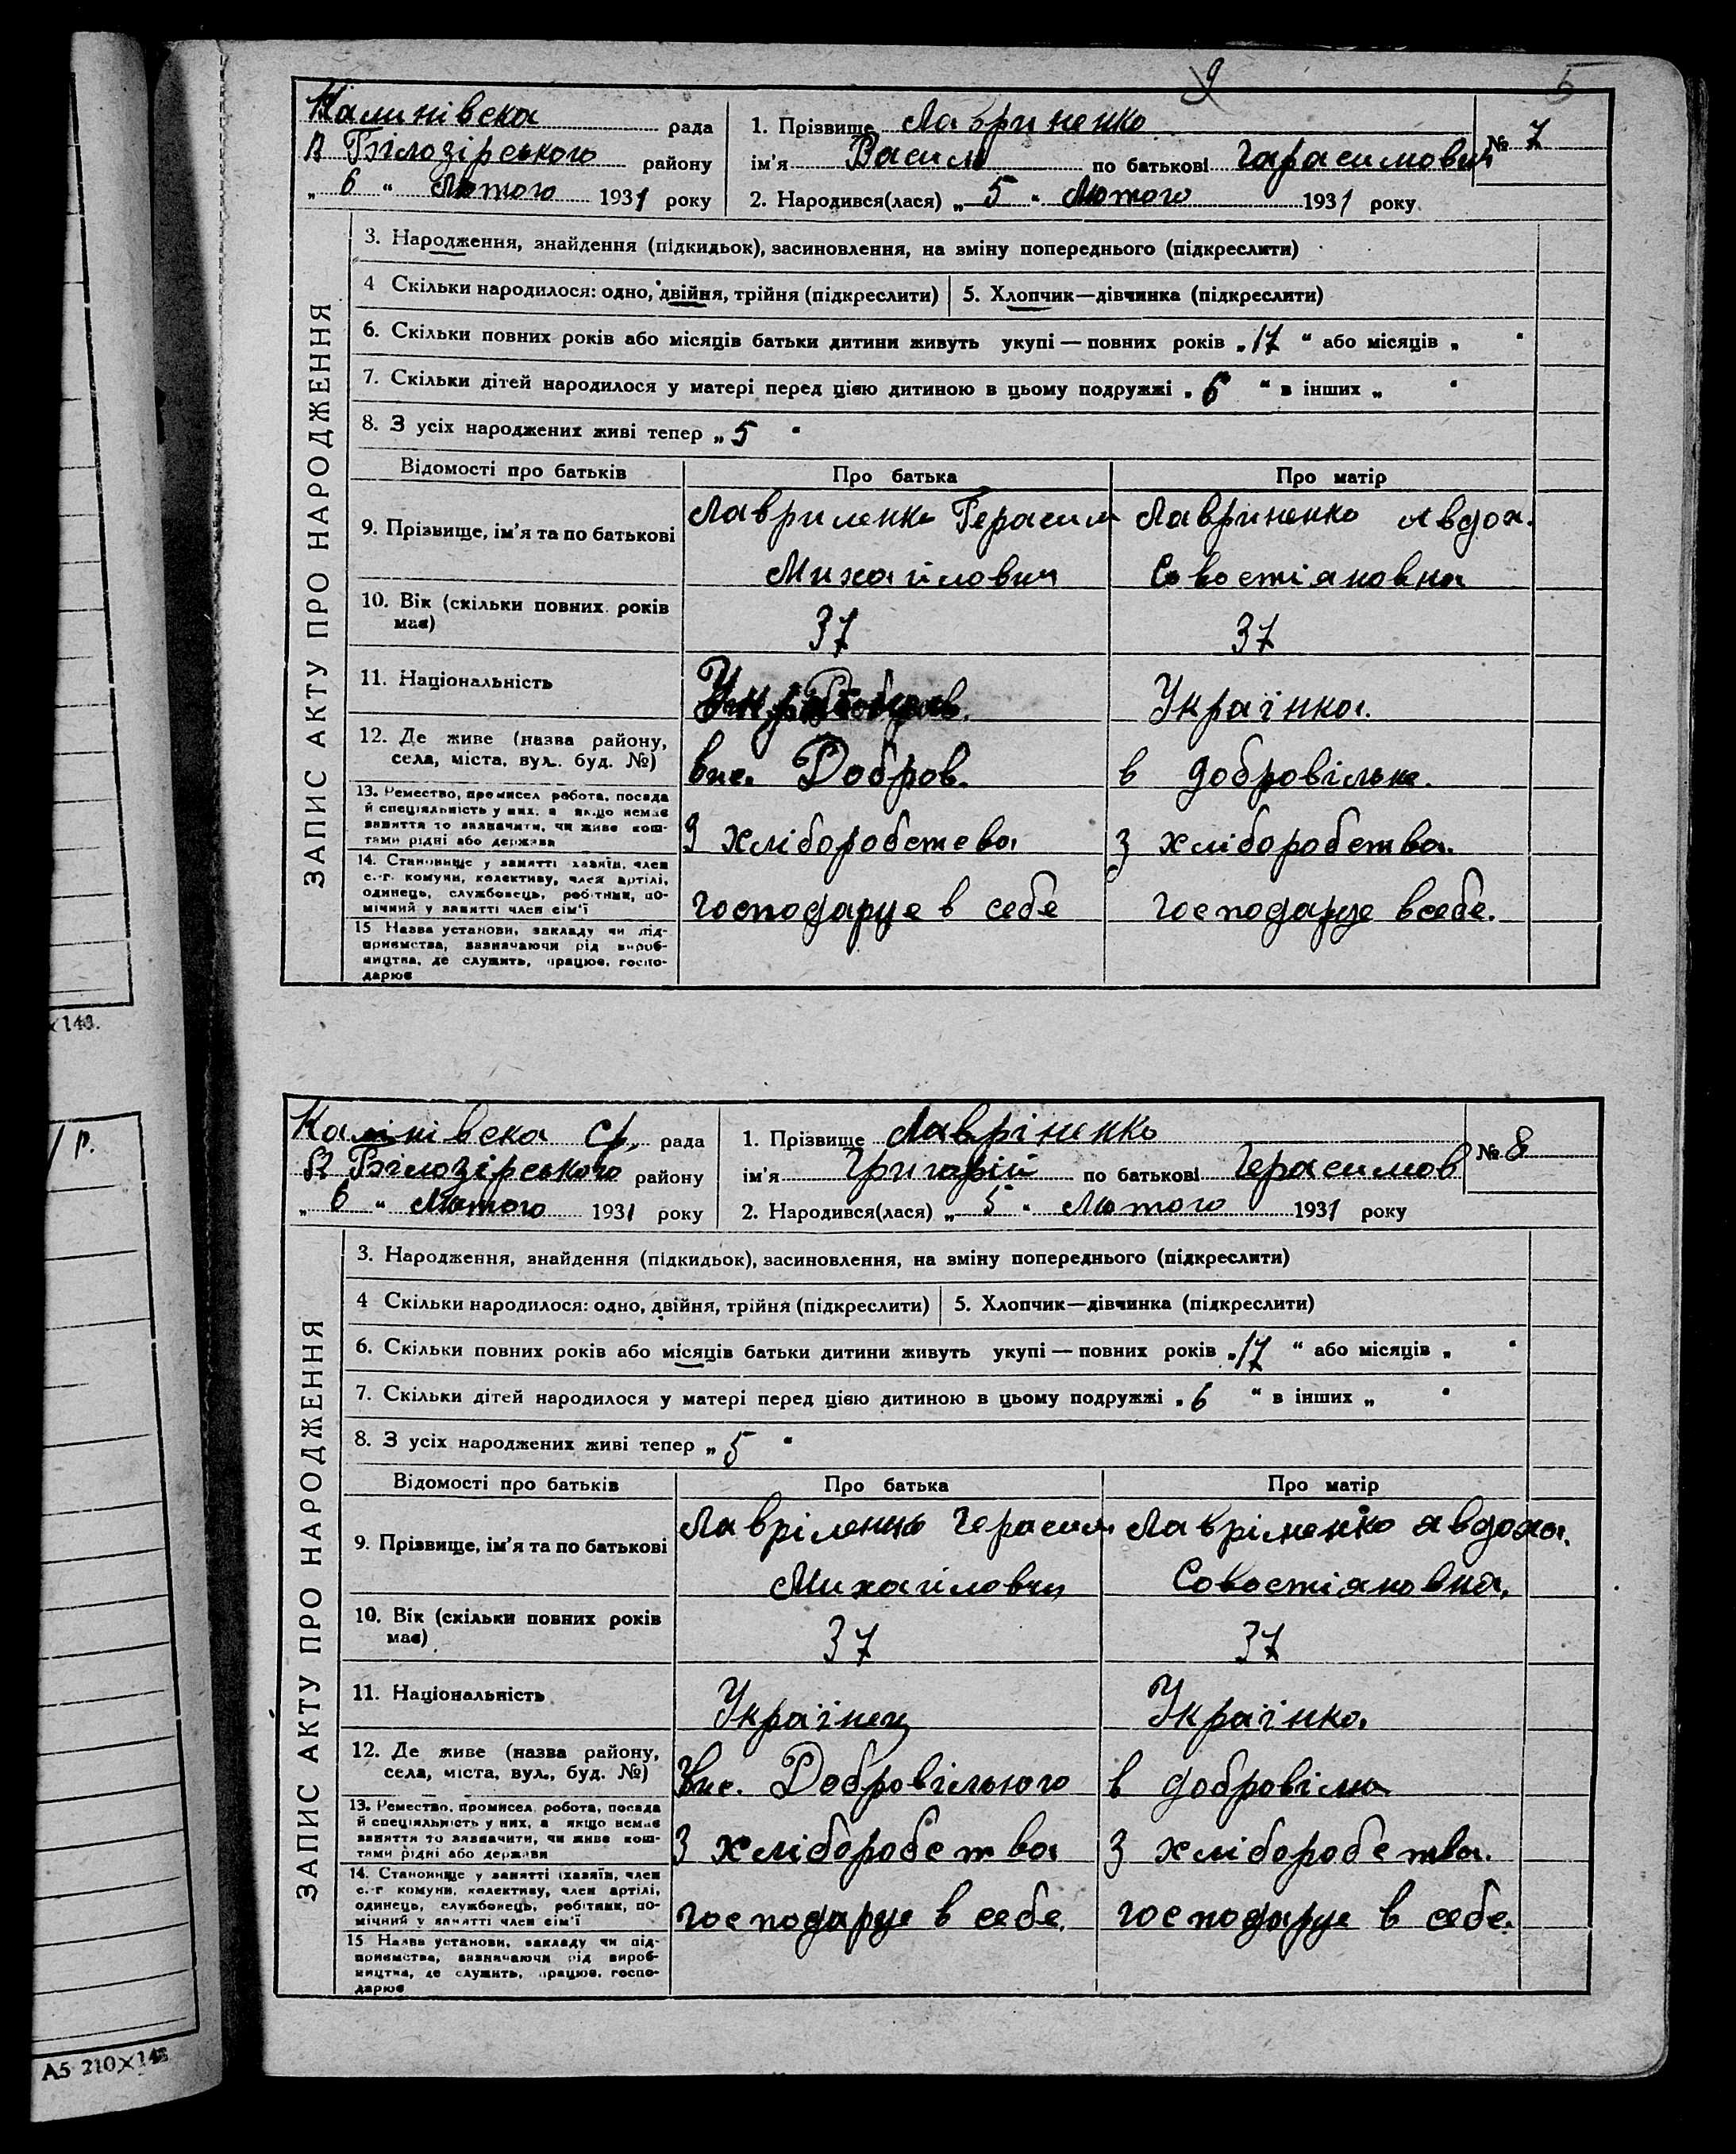 9 5
Калинівска рада
В Білозірського району
„ 6 “ Лютого 1931 року
1. Прізвище Лавриненко
ім'я Василь по батькові Гарасимович
№ 7
2. Народився(лася) „ 5 “ Лютого 1931 року
ЗАПИС АКТУ ПРО НАРОДЖЕННЯ
3. Народження, знайдення (підкидьок), засиновлення, на зміну попереднього (підкреслити)
4 Скільки народилося: одно, двійня, трійня (підкреслити) 5. Хлопчик—дівчинка (підкреслити)
6. Скільки повних років або місяців батьки дитини живуть укупі — повних років „ 17 “ або місяців „ “
7. Скільки дітей народилося у матері перед цією дитиною в цьому подружжі „ 6 “ в інших „ “
8. З усіх народжених живі тепер „ 5 “
Відомості про батьків Про батька Про матір
9. Прізвище, ім'я та по батькові
Лавриленко Герасим
Михайлович
Лавриненко Авдох.
Совостіяновна
10. Вік (скільки повних років має) 37 37
11. Національність Українка.
12. Де живе (назва району, села, міста, вул. буд. №) вис. Добров. в добровільне.
13. Ремество, промисел робота, посада
й спеціяльність у них, а якщо немає
заняття то зазначити, чи живе кош-
тами рідні або держава
З хліборобства з хліборобства.
14. Становище у занятті хазяїн, член
с.-г. комуни, колективу, член артілі,
одинець, службовець, робітник, по-
мічний у занятті член сім'ї
господарує в себе господарує в себе.
15 Назва установи, закладу чи під-
приємства, зазначаючи рід вироб-
ництва, де служить, працює, госпо-
дарює
Калінівска Ср. рада
В Білозірського району
„ 6 “ Лютого 1931 року
1. Прізвище Лавріненко
ім'я Григорій по батькові Герасимов
№ 8
2. Народився(лася) „ 5 “ Лютого 1931 року
ЗАПИС АКТУ ПРО НАРОДЖЕННЯ
3. Народження, знайдення (підкидьок), засиновлення, на зміну попереднього (підкреслити)
4 Скільки народилося: одно, двійня, трійня (підкреслити) 5. Хлопчик—дівчинка (підкреслити)
6. Скільки повних років або місяців батьки дитини живуть укупі — повних років „ 17 “ або місяців „ “
7. Скільки дітей народилося у матері перед цією дитиною в цьому подружжі „ 6 “ в інших „ “
8. З усіх народжених живі тепер „ 5 “
Відомості про батьків Про батька Про матір
9. Прізвище, ім'я та по батькові
Лавріленко Герасим
Михайлович
Лавріненко Авдоха.
Совостіяновна.
10. Вік (скільки повних років має) 37 37
11. Національність Українец Українка.
12. Де живе (назва району, села, міста, вул., буд. №) вис. Добровільного в добровілы
13. Ремество, промисел, робота, посада
й спеціяльність у них, а якщо немає
заняття то зазначити, чи живе кош-
тами рідні або держави
З хліборобства З хліборобства.
14. Становище у занятті (хазяїн, член
с.-г комуни, колективу, член артілі,
одинець, службовець, робітник, по-
мічний у занятті член сім'ї
господарує в себе. господарує в себе.
15 Назва установи, закладу чи під-
приємства, зазначаючи рід вироб-
ництва, де служить, працює, госпо-
дарює
х 148.
р.
А5 210×148